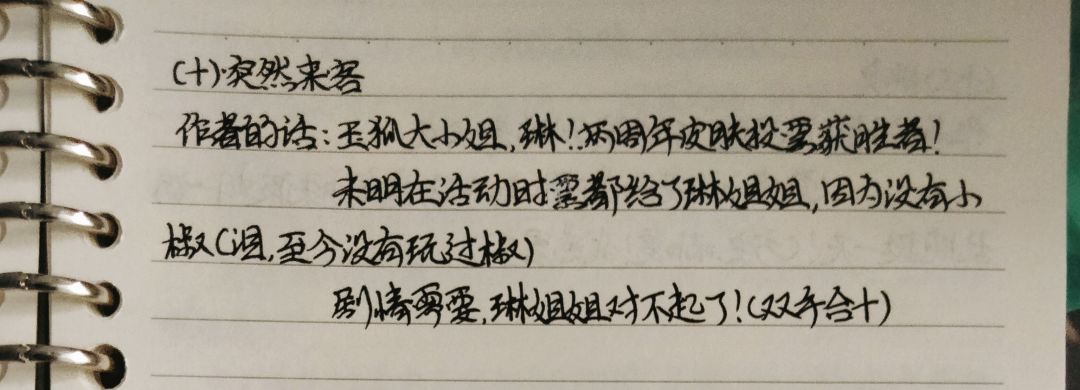 (十)突然来客
作者的话:玉狐大小姐,琳!两周年皮肤投票获胜者!
未明在活动时票都给了琳姐姐,因为没有小
椒(泪,至今没有玩过椒)
剧情需要,琳姐姐对不起了!(双手合十)